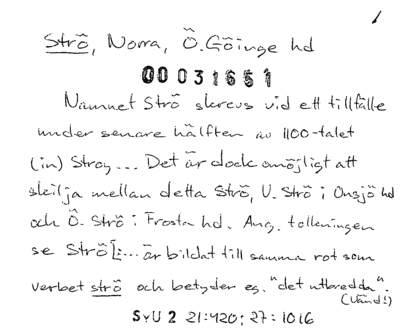 Strö, Norra, Ö. Göinge hd
00031651
Namnet Strö skrevs vid ett tillfälle
under senare hälften av 1100-talet
(in) Stroy... Det är dock omöjligt att
skilja mellan detta Strö, V. Strö i Onsjö hd
och Ö. Strö i Frosta hd. Ang. tolkningen
se Strö[:... är bildat till samma rot som
verbet strö och betyder eg. "det utbredda".
(Vänd!)
SvU 2 21:420; 27:1016